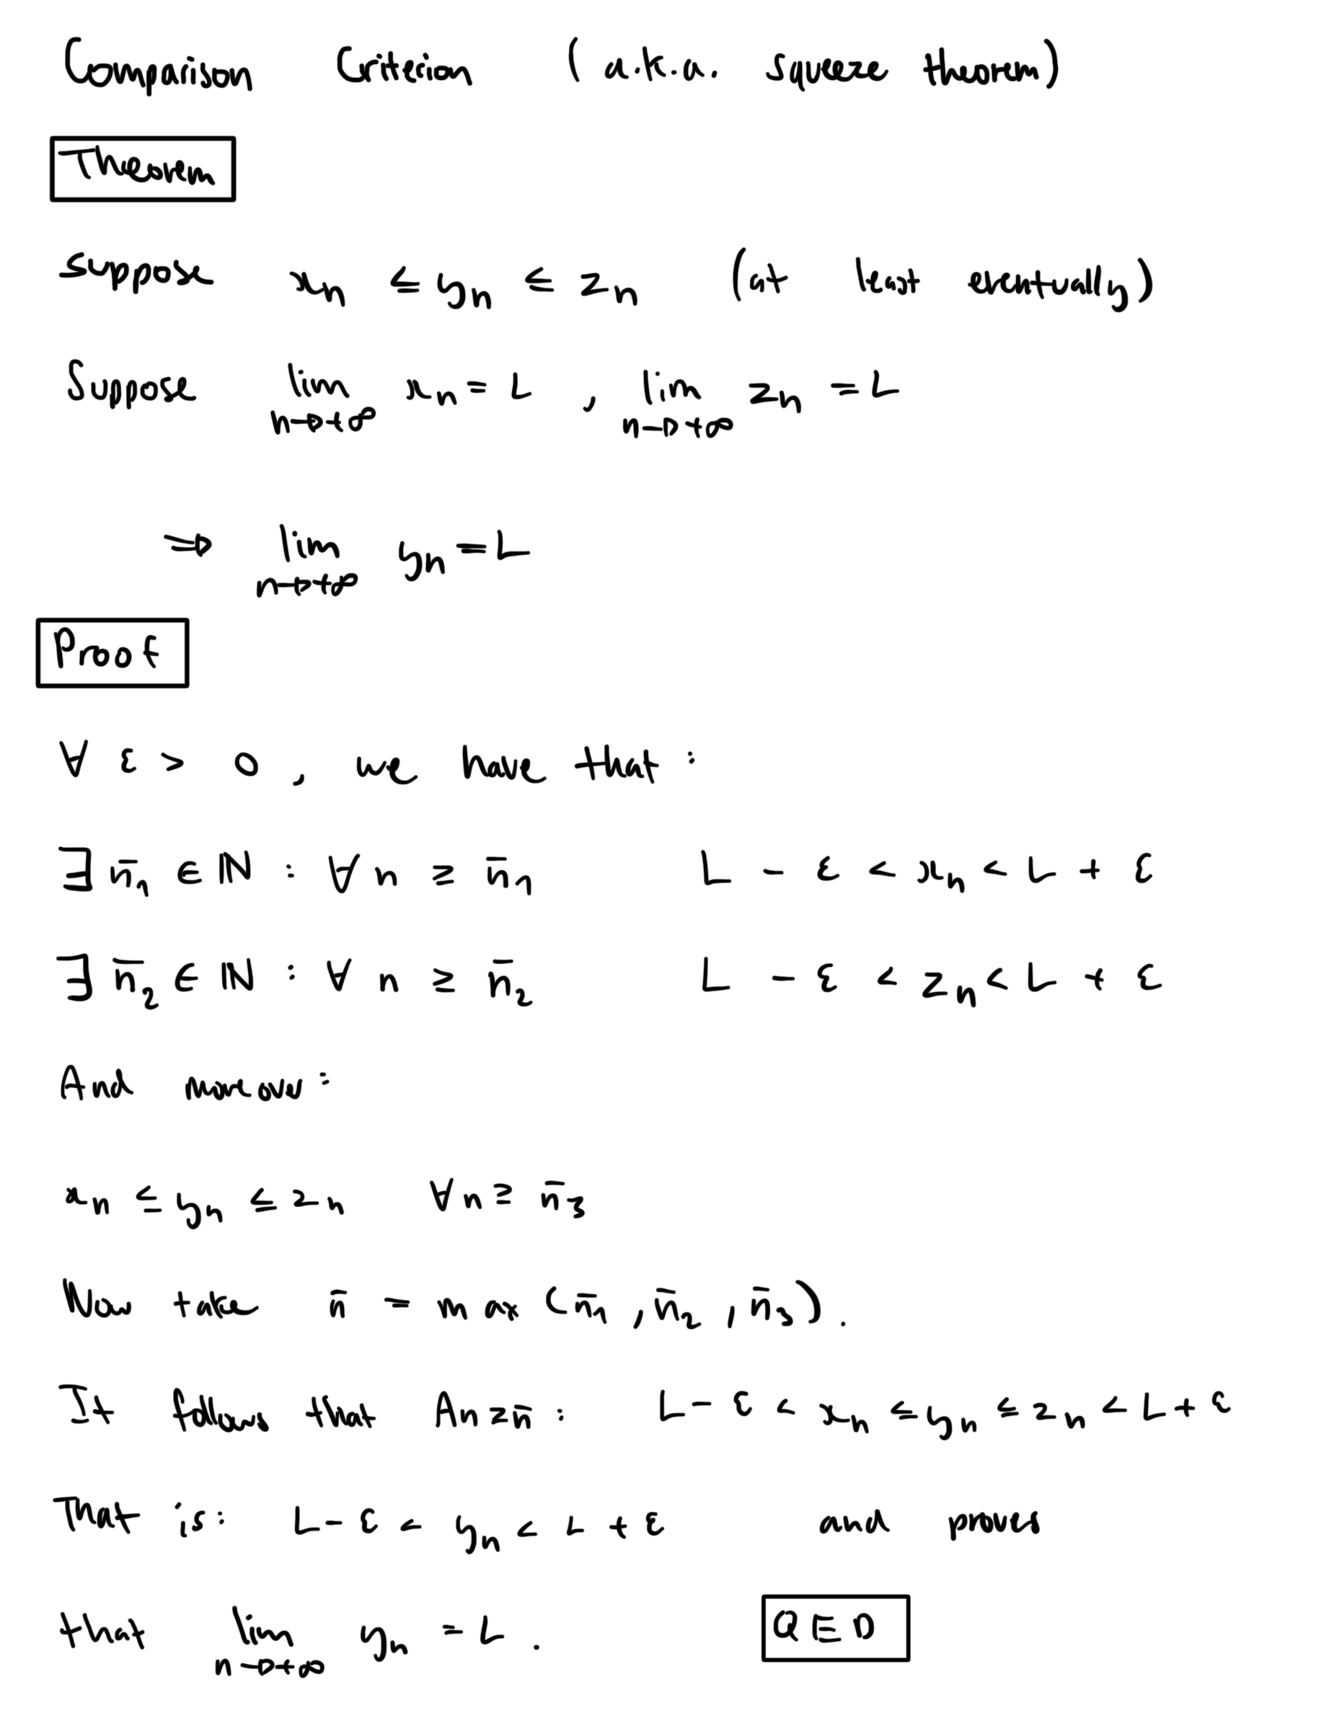 Comparison Criterion (a.k.a. squeeze theorem)
Theorem
suppose xₙ ≤ yₙ ≤ zₙ (at least eventually)
Suppose lim n→+∞ xₙ = L , lim n→+∞ zₙ = L
⇒ lim n→+∞ yₙ = L
Proof
∀ ε > 0 , we have that :
∃ n̄₁ ∈ ℕ : ∀ n ≥ n̄₁ L - ε < xₙ < L + ε
∃ n̄₂ ∈ ℕ : ∀ n ≥ n̄₂ L - ε < zₙ < L + ε
And moreover :
xₙ ≤ yₙ ≤ zₙ ∀ n ≥ n̄₃
Now take n̄ = max (n̄₁ , n̄₂ , n̄₃) .
It follows that ∀n ≥ n̄ : L - ε < xₙ ≤ yₙ ≤ zₙ < L + ε
That is : L - ε < yₙ < L + ε and proves
that lim n→+∞ yₙ = L . QED